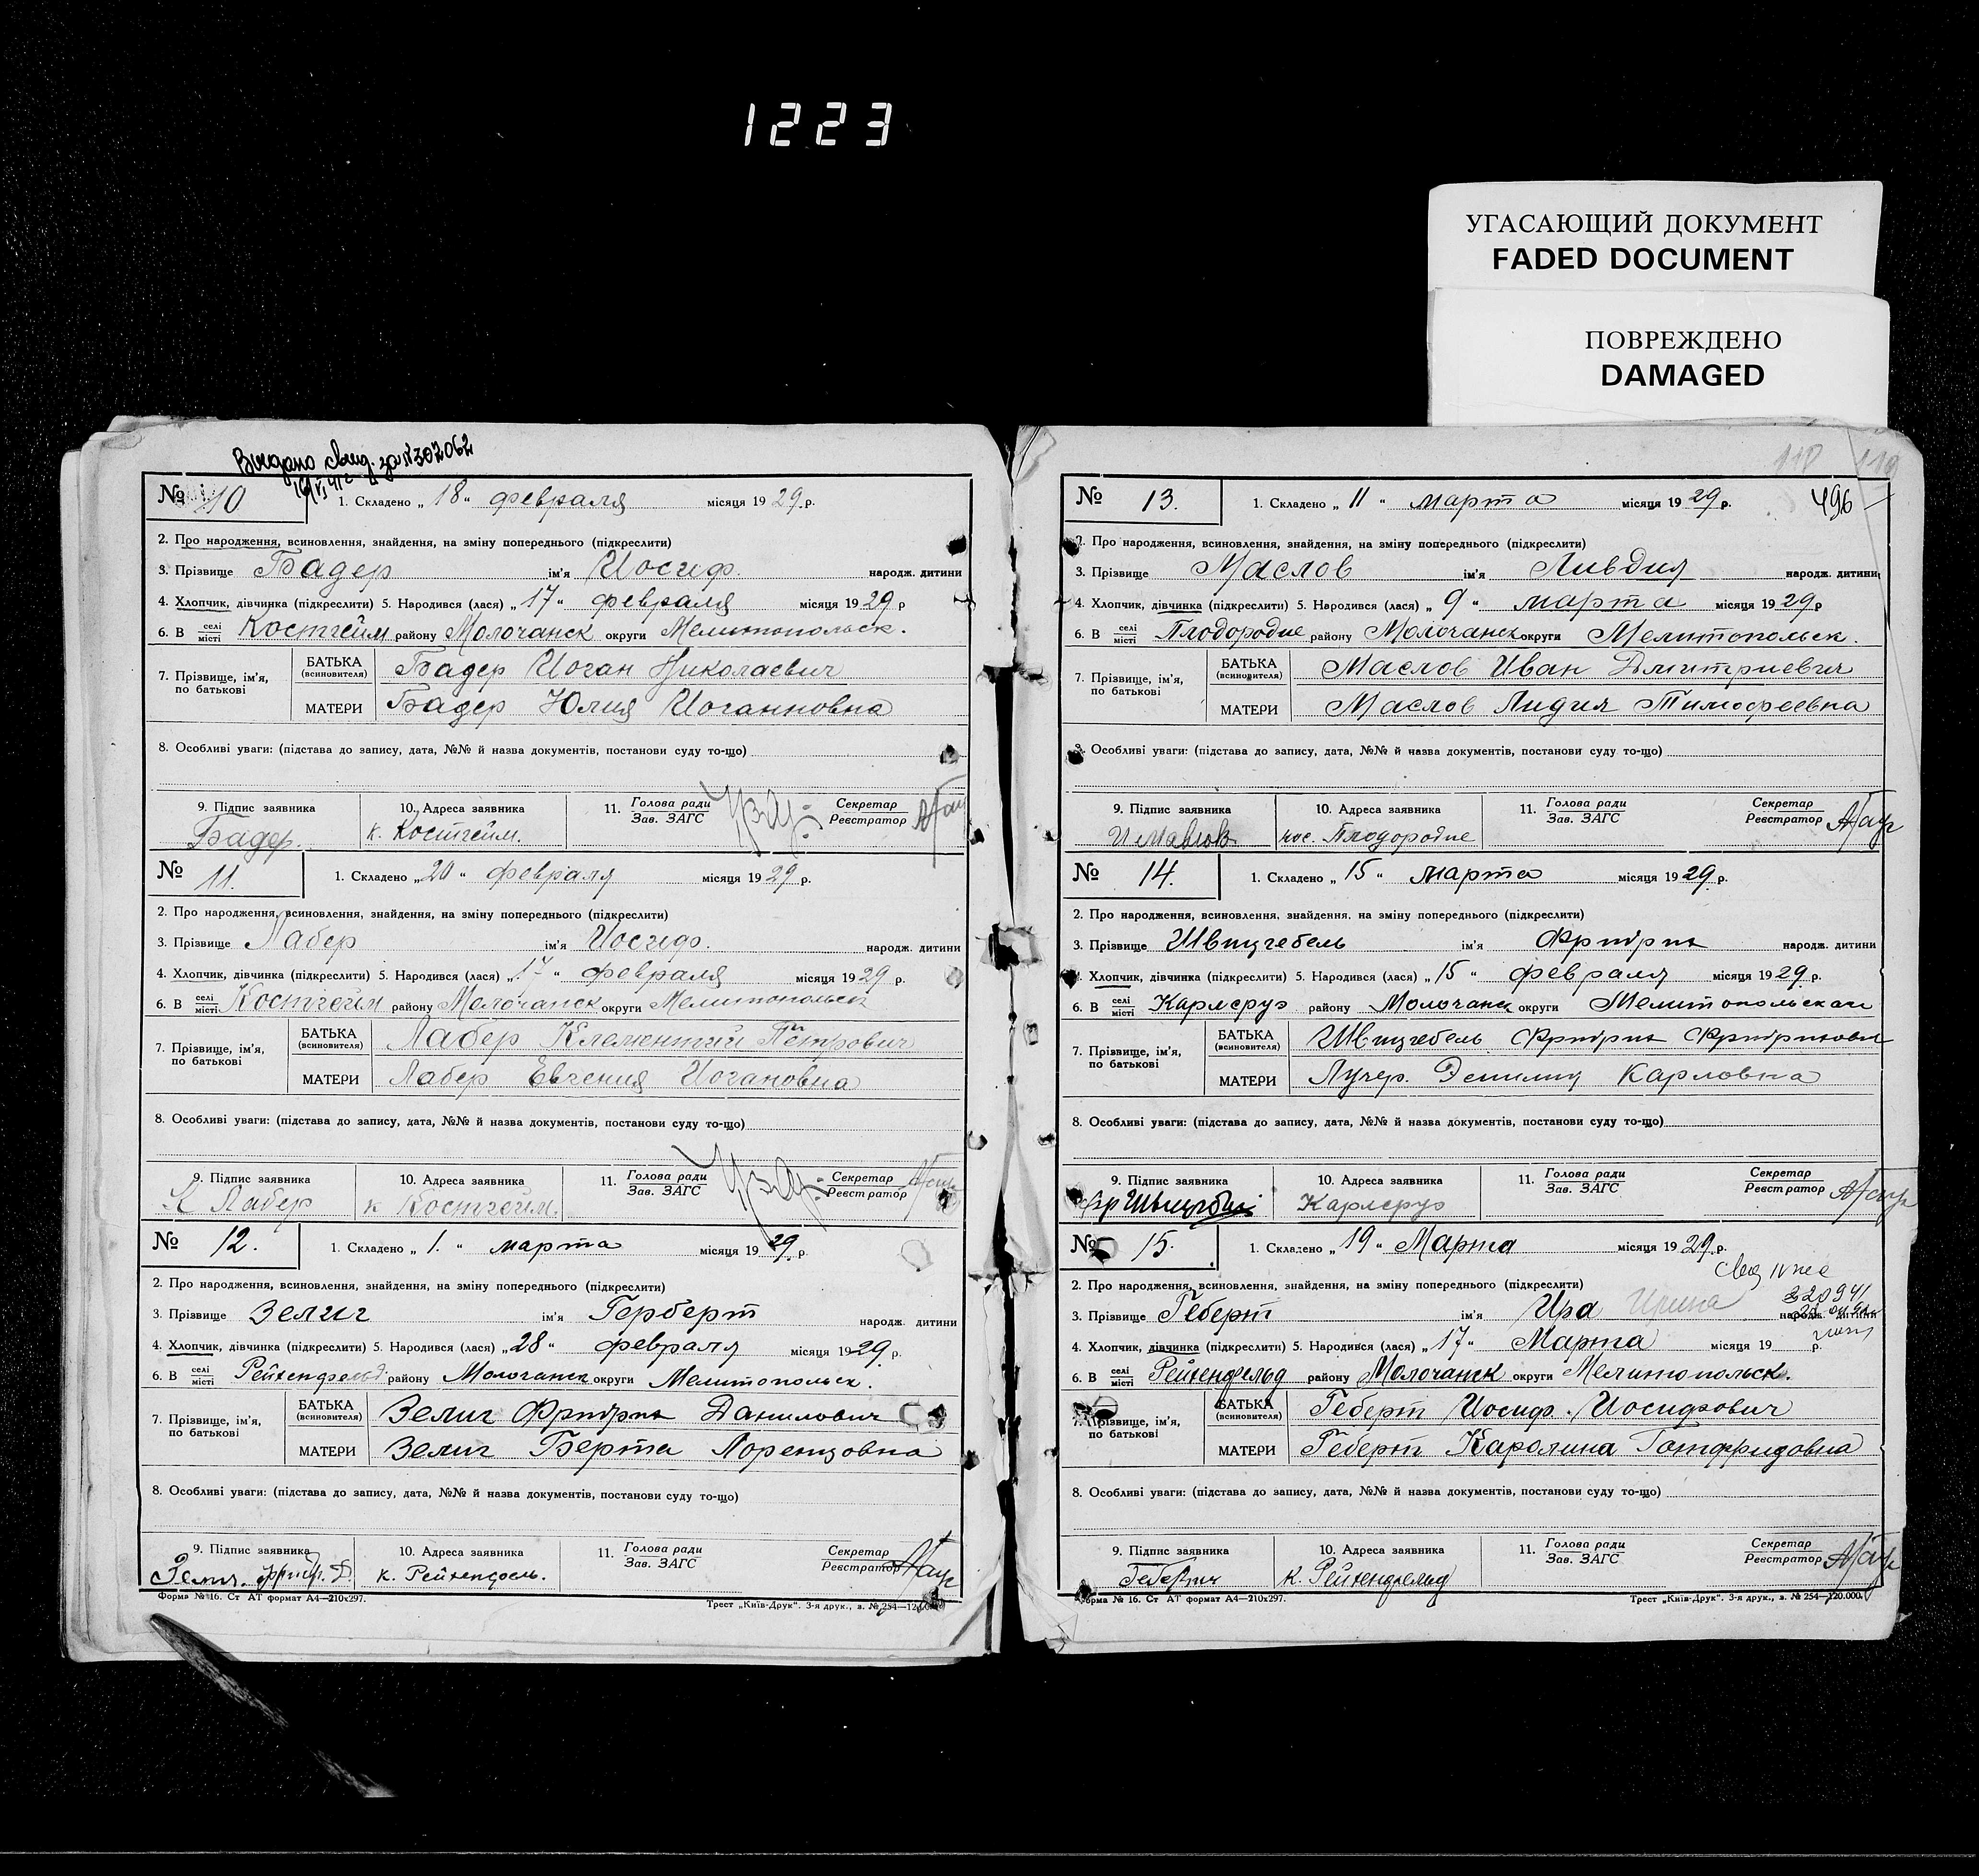 1223
УГАСАЮЩИЙ ДОКУМЕНТ
FADED DOCUMENT
ПОВРЕЖДЕНО
DAMAGED
302062
№ 10
1. Складено „ 18 “ февраля місяця 19 29. р.
2. Про народження, всиновлення, знайдення, на зміну попереднього (підкреслити)
3. Прізвище Бадер ім'я Иосиф. народж. дитини
4. Хлопчик, дівчинка (підкреслити) 5. Народився (лася) „ 17 “ февраля місяця 19 29 р
6. В селі місті Костгейм району Молочанск округи Мелитопольск.
7. Прізвище, ім'я, по батькові
БАТЬКА (всиновителя) Бадер Иоган Николаевич
МАТЕРИ Бадер Юлия Иоганновна
8. Особливі уваги: (підстава до запису, дата, №№ й назва документів, постанови суду то-що)
9. Підпис заявника Бадер.
10. Адреса заявника к. Костгейм.
11. Голова ради Зав. ЗАГС
Секретар Реєстратор
№ 11.
1. Складено „ 20 “ февраля місяця 19 29 р.
2. Про народження, всиновлення, знайдення, на зміну попереднього (підкреслити)
3. Прізвище Лабер ім'я Иосиф. народж. дитини
4. Хлопчик, дівчинка (підкреслити) 5. Народився (лася) „ 17 “ февраля місяця 19 29 р.
6. В селі місті Костгейм району Молочанск округи Мелитопольск
7. Прізвище, ім'я, по батькові
БАТЬКА (всиновителя) Лабер Клементий Петрович
МАТЕРИ Лабер Евгения Иогановна
8. Особливі уваги: (підстава до запису, дата, №№ й назва документів, постанови суду то-що)
9. Підпис заявника К Лабер
10. Адреса заявника к Костгейм.
11. Голова ради Зав. ЗАГС
Секретар Реєстратор
№ 12.
1. Складено „ 1. “ марта місяця 19 29. р.
2. Про народження, всиновлення, знайдення, на зміну попереднього (підкреслити)
3. Прізвище Зелиг ім'я Герберт народж. дитини
4. Хлопчик, дівчинка (підкреслити) 5. Народився (лася) „ 28 “ февраля місяця 19 29 р.
6. В селі місті Рейхенфельд району Молочанск округи Мелитопольск.
7. Прізвище, ім'я, по батькові
БАТЬКА (всиновителя) Зелиг Фридрих Данилович
МАТЕРИ Зелиг Берта Лоренцовна
8. Особливі уваги: (підстава до запису, дата, №№ й назва документів, постанови суду то-що)
9. Підпис заявника
10. Адреса заявника к. Рейхенфель.
11. Голова ради Зав. ЗАГС
Секретар Реєстратор
Форма № 16. Ст АТ формат А4—210x297.
Трест „Київ-Друк". 3-я друк., з. № 254—120.000.
118 119
№ 13.
1. Складено „ 11 “ марта місяця 19 29 р.
496
2. Про народження, всиновлення, знайдення, на зміну попереднього (підкреслити)
3. Прізвище Маслов ім'я Ливдия народж. дитини
4. Хлопчик, дівчинка (підкреслити) 5. Народився (лася) „ 9 “ марта місяця 19 29 р
6. В селі місті Плодородие району Молочанск округи Мелитопольск.
7. Прізвище, ім'я, по батькові
БАТЬКА (всиновителя) Маслов Иван Дмитриевич
МАТЕРИ Маслов Лидия Тимофеевна
8. Особливі уваги: (підстава до запису, дата, №№ й назва документів, постанови суду то-що)
9. Підпис заявника
10. Адреса заявника пос. Плодородие
11. Голова ради Зав. ЗАГС
Секретар Реєстратор
№ 14.
1. Складено „ 15 “ марта місяця 19 29. р.
2. Про народження, всиновлення, знайдення, на зміну попереднього (підкреслити)
3. Прізвище Швицгебель ім'я Фридрих народж. дитини
4. Хлопчик, дівчинка (підкреслити) 5. Народився (лася) „ 15 “ февраля місяця 19 29 р.
6. В селі місті Карлсруэ району Молочанск округи Мелитопольская
7. Прізвище, ім'я, по батькові
БАТЬКА (всиновителя) Швицгебель Фридрих Фридрихович
МАТЕРИ Лучер. Эмилия Карловна
8. Особливі уваги: (підстава до запису, дата, №№ й назва документів, постанови суду то-що)
9. Підпис заявника
10. Адреса заявника Карлсруэ
11. Голова ради Зав. ЗАГС
Секретар Реєстратор
№ 15.
1. Складено „ 19 “ Марта місяця 19 29 р.
2. Про народження, всиновлення, знайдення, на зміну попереднього (підкреслити)
320941
3. Прізвище Геберт ім'я Ира Ирина народж. дитини
4. Хлопчик, дівчинка (підкреслити) 5. Народився (лася) „ 17 “ Марта місяця 19 р.
6. В селі місті Рейхенфельд району Молочанск округи Мелитопольск.
7. Прізвище, ім'я, по батькові
БАТЬКА (всиновителя) Геберт Иосиф. Иосифович
МАТЕРИ Геберт Каролина Готфридовна
8. Особливі уваги: (підстава до запису, дата, №№ й назва документів, постанови суду то-що)
9. Підпис заявника
10. Адреса заявника к. Рейхенфельд
11. Голова ради Зав. ЗАГС
Секретар Реєстратор
Форма № 16. Ст АТ формат А4—210x297.
Трест „Київ-Друк". 3-я друк., з. № 254—120.000.